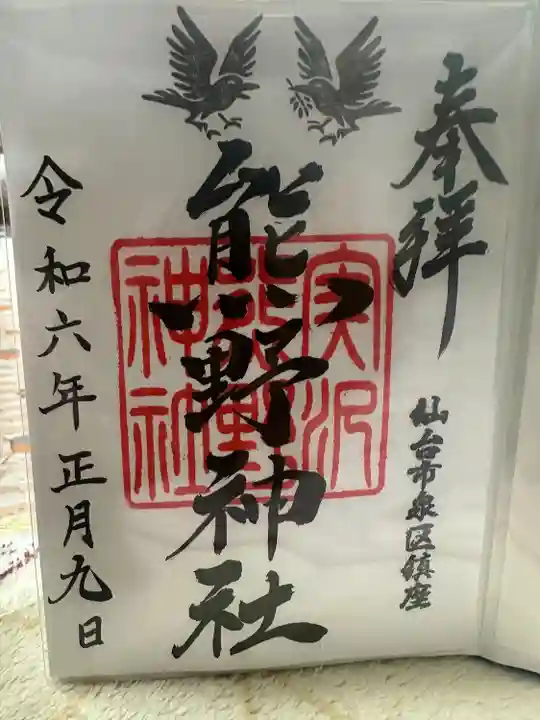 奉拝
仙台市泉区鎮座
熊野神社
実沢
熊野
神社
令和六年正月九日